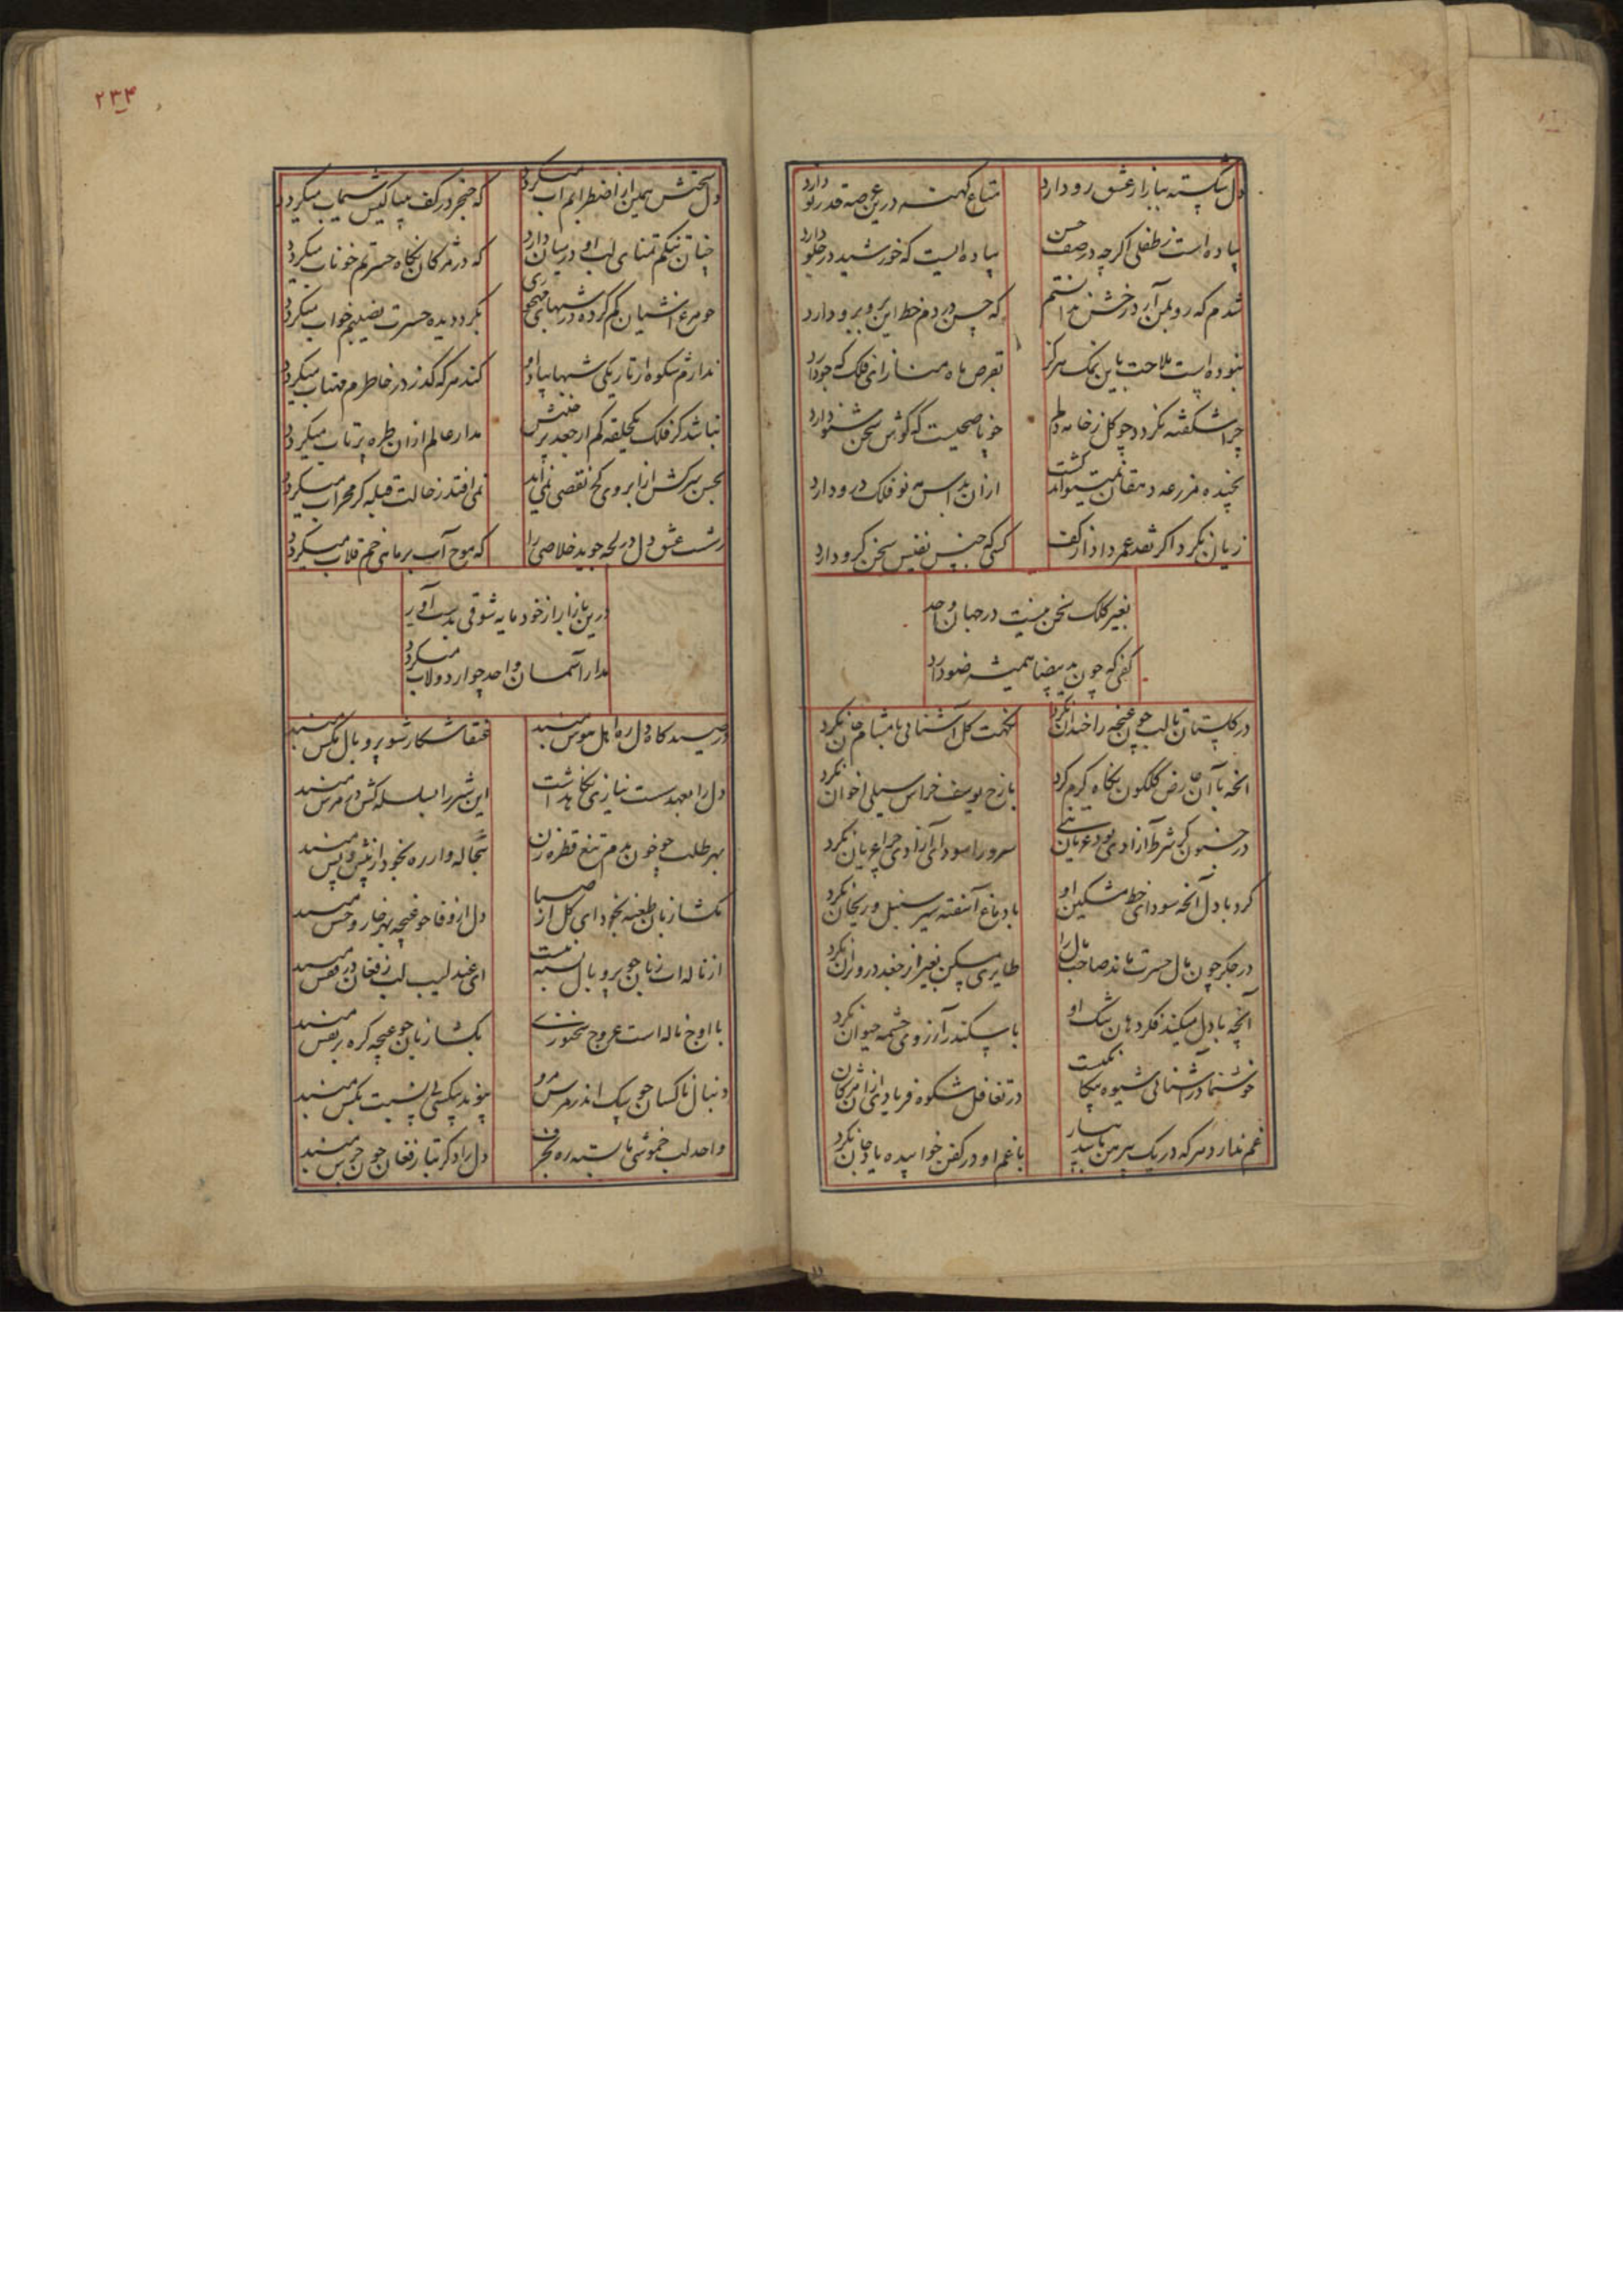 دل شکسته ببازار عشق رو دارد
متاع کهنه درین عرصه قدر نو دارد
پیاده است ز طفلی اگر چه در صف حسن
پیاده ایست که خورشید در جلو دارد
شدم که رو بمن آرد خطش ندانستم
که حسن در دم خط این برو برو دارد
نبوده است ملاحت باین نمک هرگز
بقرص ماه مناز ای فلک که جو دارد
چرا شکفته نگردد چو گل ز خامه دلم
خوبا صحبت که گوش سخن شنو دارد
نچیده مزرعه دهقان نمیتواند گشت
ازان بداس مه نو فلک درو دارد
زیان نکرد اگر نقد عمر داد از کف
کسی که جنس نفیس سخن گرو دارد
بغیر کلک سخن نیست در جهان واحد
کفی که چون ید بیضا همیشه ضو دارد
در گلستان تا لب چون غنچه را خندان نکرد
نکهت گل آشنائی با مشام جان نکرد
انچه با آن عارض گلگون نگاه گرم کرد
با رخ یوسف خراش سیلی اخوان نکرد
در جنون گر شرط آزادی بود عریان تنی
سرو را سودای آزادی چرا عریان نکرد
کرد با دل آنچه سودای خط مشکین او
با دماغ آشفته سیر سنبل و ریحان نکرد
در جگر چون مال حسرت ماند صاحب مال را
طایری مسکن بغیر از جغد در ویران نکرد
آنچه با دل میکند فکر دهان تنگ او
با سکندر آرزوی چشمه حیوان نکرد
خوشنما در آشنائی شیوه بیگانگیست
در تغافل شکوه فریادی ازان مژگان
غم ندارد هر که در یک پیرهن با یار
با غم او در کفن خوابیده یاد جان نکرد
۲۳۴
دل سختش همین از اضطرابم آب میگردد
که خنجر در کف بیباکیش سیماب میگردد
چنان تنگم تمنای لب او در میان دارد
که در مژگان نگاه حسرتم خوناب میگردد
چو مرغ آشیان گم کرده در شبهای مهجوری
بگرد دیده حسرت نصیبم خواب میگردد
ندارم شکوه از تاریکی شبها بیاد او
کند هر گه گذر در خاطرم مهتاب میگردد
نباشد گر فلک یکحلقه کم از جعد پر
مدار عالم ازان طره پرتاب میگردد
بحسن سرکش از ابروی کج نقصی نمی آید
نمی افتد ز حالت قبله گر محراب میگردد
ز شست عشق دل در لجه جوید خلاصی را
که موج آب بر ماهی خم قلاب میگردد
درین بازار از خود مایه شوقی بدست آور
مدار آسمان واحد چو از دولاب میگردد
در صیدگاه دل ره اهل هوس مبند
عنقا شکار شو پر و بال مگس مبند
دل را بعهد سست نیازی نگاهداشت
این شیر را بسلسله کش در مرس مبند
بهر طلب چو خون بدم تیغ قطره زن
تبخاله وار ره بخود از پیش و پس مبند
مگشا زبان طعنه بخود ای گل از صبا
دل از وفا چو غنچه بهر خار و خس مبند
از ناله ات زبان چو پر و بال بسته نیست
ای عندلیب لب ز فغان در قفس مبند
با اوج ناله است عروج سخنوری
بگشا زبان چو غنچه گره بر نفس مبند
دنبال ناکسان چو سگ اندر مرس مرو
پیوند بیکسی به پشت بکس مبند
واحد لب خموشی ما بسته ره بحرف
دل را دگر بتار فغان چون جرس مبند